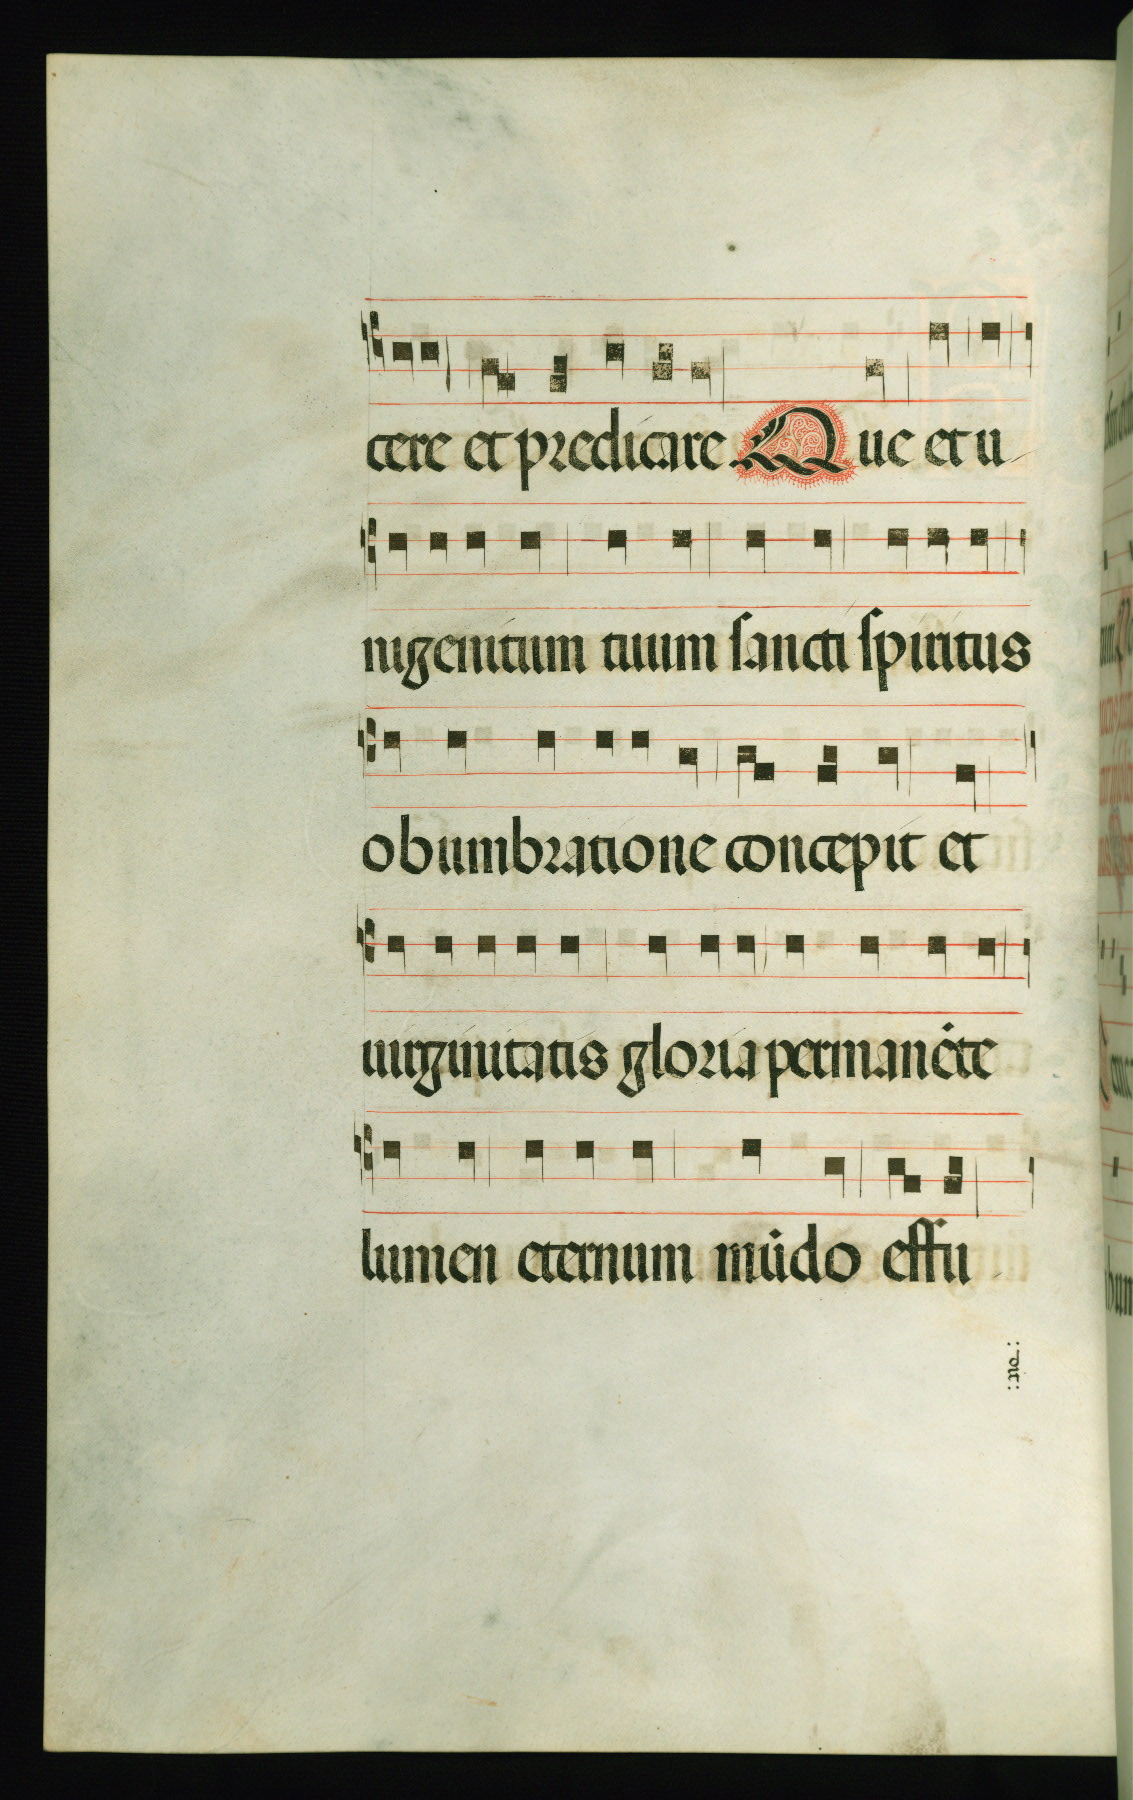 cere et predicare Que et u
nigenitum tuum sancti spiritus
obumbratione concepit et
uirginitatis gloria permanẽte
lumen eternum mũdo effu